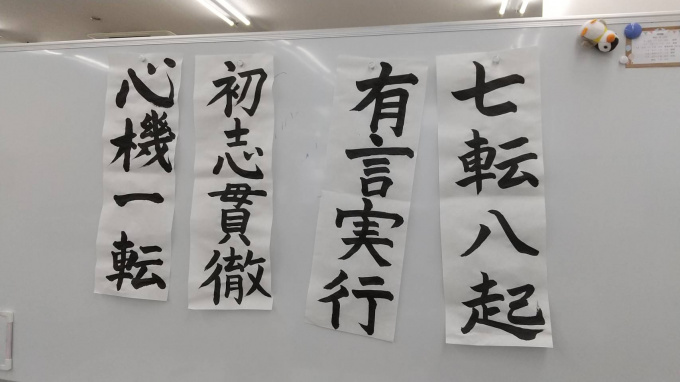 七転八起
有言実行
初志貫徹
心機一転